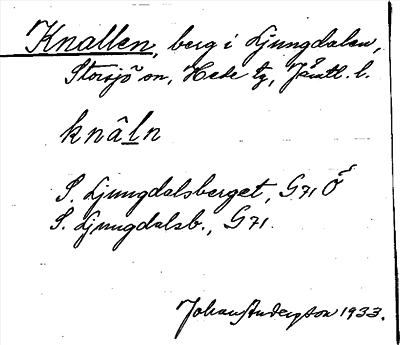 Knallen, berg i Ljungdalen,
Storsjö sn, Hede tg, Jämtl. l.
knâln
S. Ljungdalsberget, G71 Ö
S. Ljungdalsb., G71.
Johan Anderzson 1933.